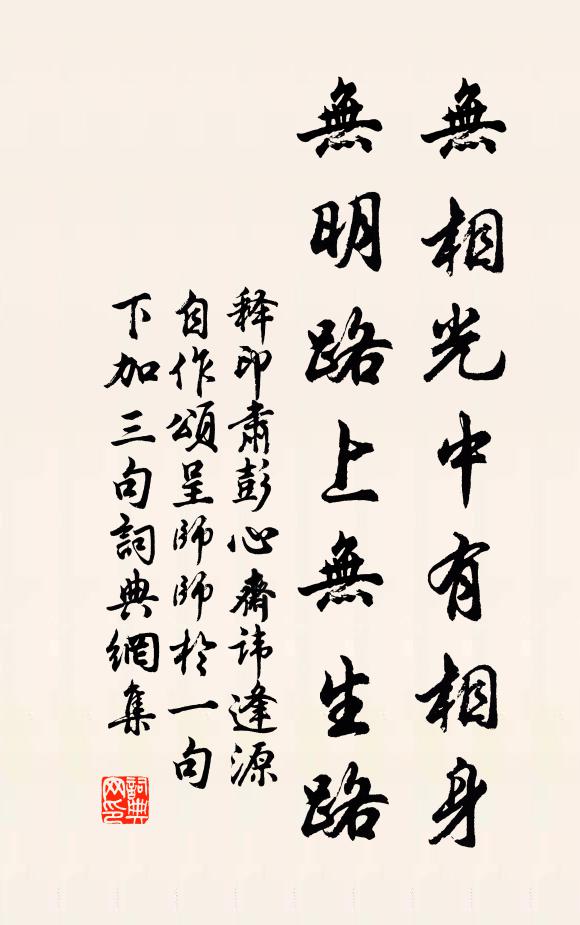 無相光中有相身
無明路上無生路
释印肃彭心齋讳逢源
自作頌呈師師於一句
下加三句詞典網集
詞典网印